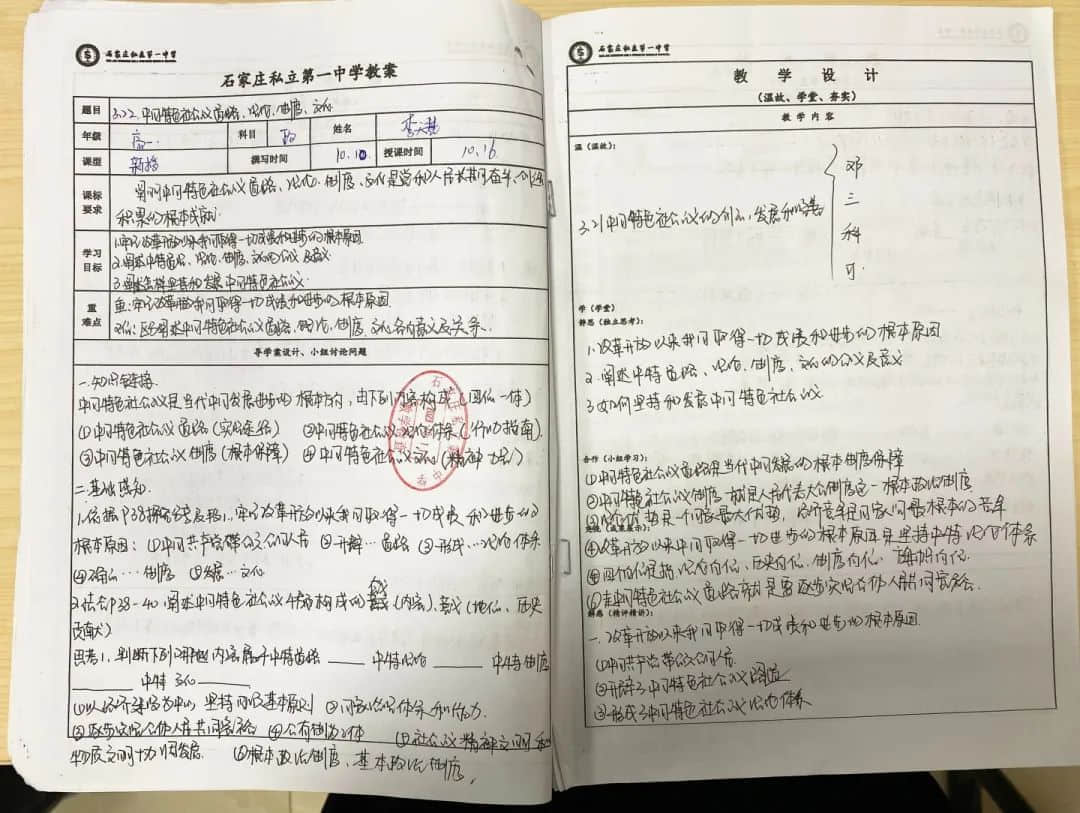 石家庄私立第一中学
石家庄私立第一中学教案
题目 3.2.2 中国特色社会主义道路、理论、制度、文化
年级 高一 科目 政 姓名
课型 新授 撰写时间 10.10 授课时间 10.16
课标要求 阐明中国特色社会主义道路、理论、制度、文化是党和人民长期奋斗、
积累的根本成就
学习目标 1.牢记改革开放以来我们取得一切成绩和进步的根本原因
2.阐述中特道路、理论、制度、文化的含义及意义
3.阐述怎样坚持和发展中国特色社会主义
重难点 重:牢记改革开放我们取得一切成绩和进步的根本原因
难:正确阐述中国特色社会主义道路、理论、制度、文化各自意义及关系.
导学案设计、小组讨论问题
一.知识链接.
中国特色社会主义是当代中国发展进步的根本方向,由下列内容构成(四位一体)
①中国特色社会主义道路(实现途径) ②中国特色社会主义理论体系(行动指南).
③中国特色社会主义制度(根本保障) ④中国特色社会主义文化(精神力量)
二.基础感知.
1.依据P38 牢记改革开放以来我们取得一切成绩和进步的
根本原因: ①中国共产党带领全国人民 ②开辟…道路 ③形成…理论体系
④确立…制度 ⑤发展…文化
2.结合P38-40,阐述中国特色社会主义4个部分构成的含义(内容)、意义(地位、历史
贡献)
思考1.判断下列哪些内容属于中特道路 ____ 中特理论 ____ 中特制度
____ 中特文化 ____
①以经济建设为中心,坚持四项基本原则 ②国家治理体系和能力.
③逐步实现全体人民共同富裕 ④公有制为主体 ⑤社会主义精神文明和
物质文明协调发展. ⑥根本政治制度、基本政治制度,
石家庄私立第一中学
教 学 设 计
(温故、学堂、夯实)
教 学 内 容
温(温故):
3.2.1中国特色社会主义的创立、发展和完善
邓
三
科
习.
学(学堂)
群思(独立思考):
1.改革开放以来我们取得一切成绩和进步的根本原因
2.阐述中特道路、理论、制度、文化的含义及意义
3.如何坚持和发展中国特色社会主义.
合作(小组学习):
①中国特色社会主义道路是当代中国发展的根本制度保障
②中国特色社会主义制度 就是人民代表大会制度这一根本政治制度
③
(成果展示):
④改革开放以来中国取得一切进步的根本原因是坚持中特理论体系
⑤四个自信是指,理论自信、历史自信、制度自信、道路自信.
⑥走中国特色社会主义道路就是要逐步实现全体人民共同富裕.
群思(精评精讲):
一.改革开放以来我们取得一切成绩和进步的根本原因.
①中国共产党带领全国人民.
②开辟了中国特色社会主义道路
③形成了中国特色社会主义理论体系